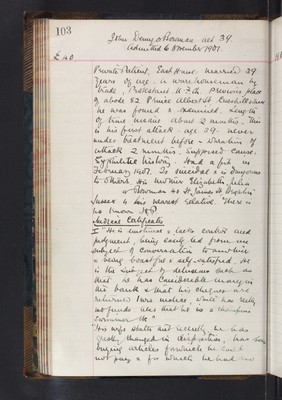 103
John Denny or Bowman aet 39
Admitted 6 November 1901.
Private Patient, East House. married 39
years of age. A warehouseman by
trade, Protestant previous place
of abode 52 Prince Albert St
he was found & examined. Length
of time insane about 2 months. This
is his first attack - age 39 - never
under treatment before - Duration of
attack 2 months. Supposed cause.
Syphilitic history. Had a fit in
February 1901. Is suicidal & is dangerous
to others His mother Elizabeth
or Bowman 40 St James St Brighton
Sussex is his nearest relative. There is
no known
Medical Certificates
I "He is emotional & lacks control and
judgment, being easily led from one
subject of conversation to another
& being boastful & self-satisfied. He
is the subject of delusions such as
that he has considerable money in
the bank & that his cheques are
returned
no funds also that he is a champion
swimmer etc"
"His wife states that recently he has
greatly changed in disposition, has been
buying articles for which he could
not pay & for which he had no